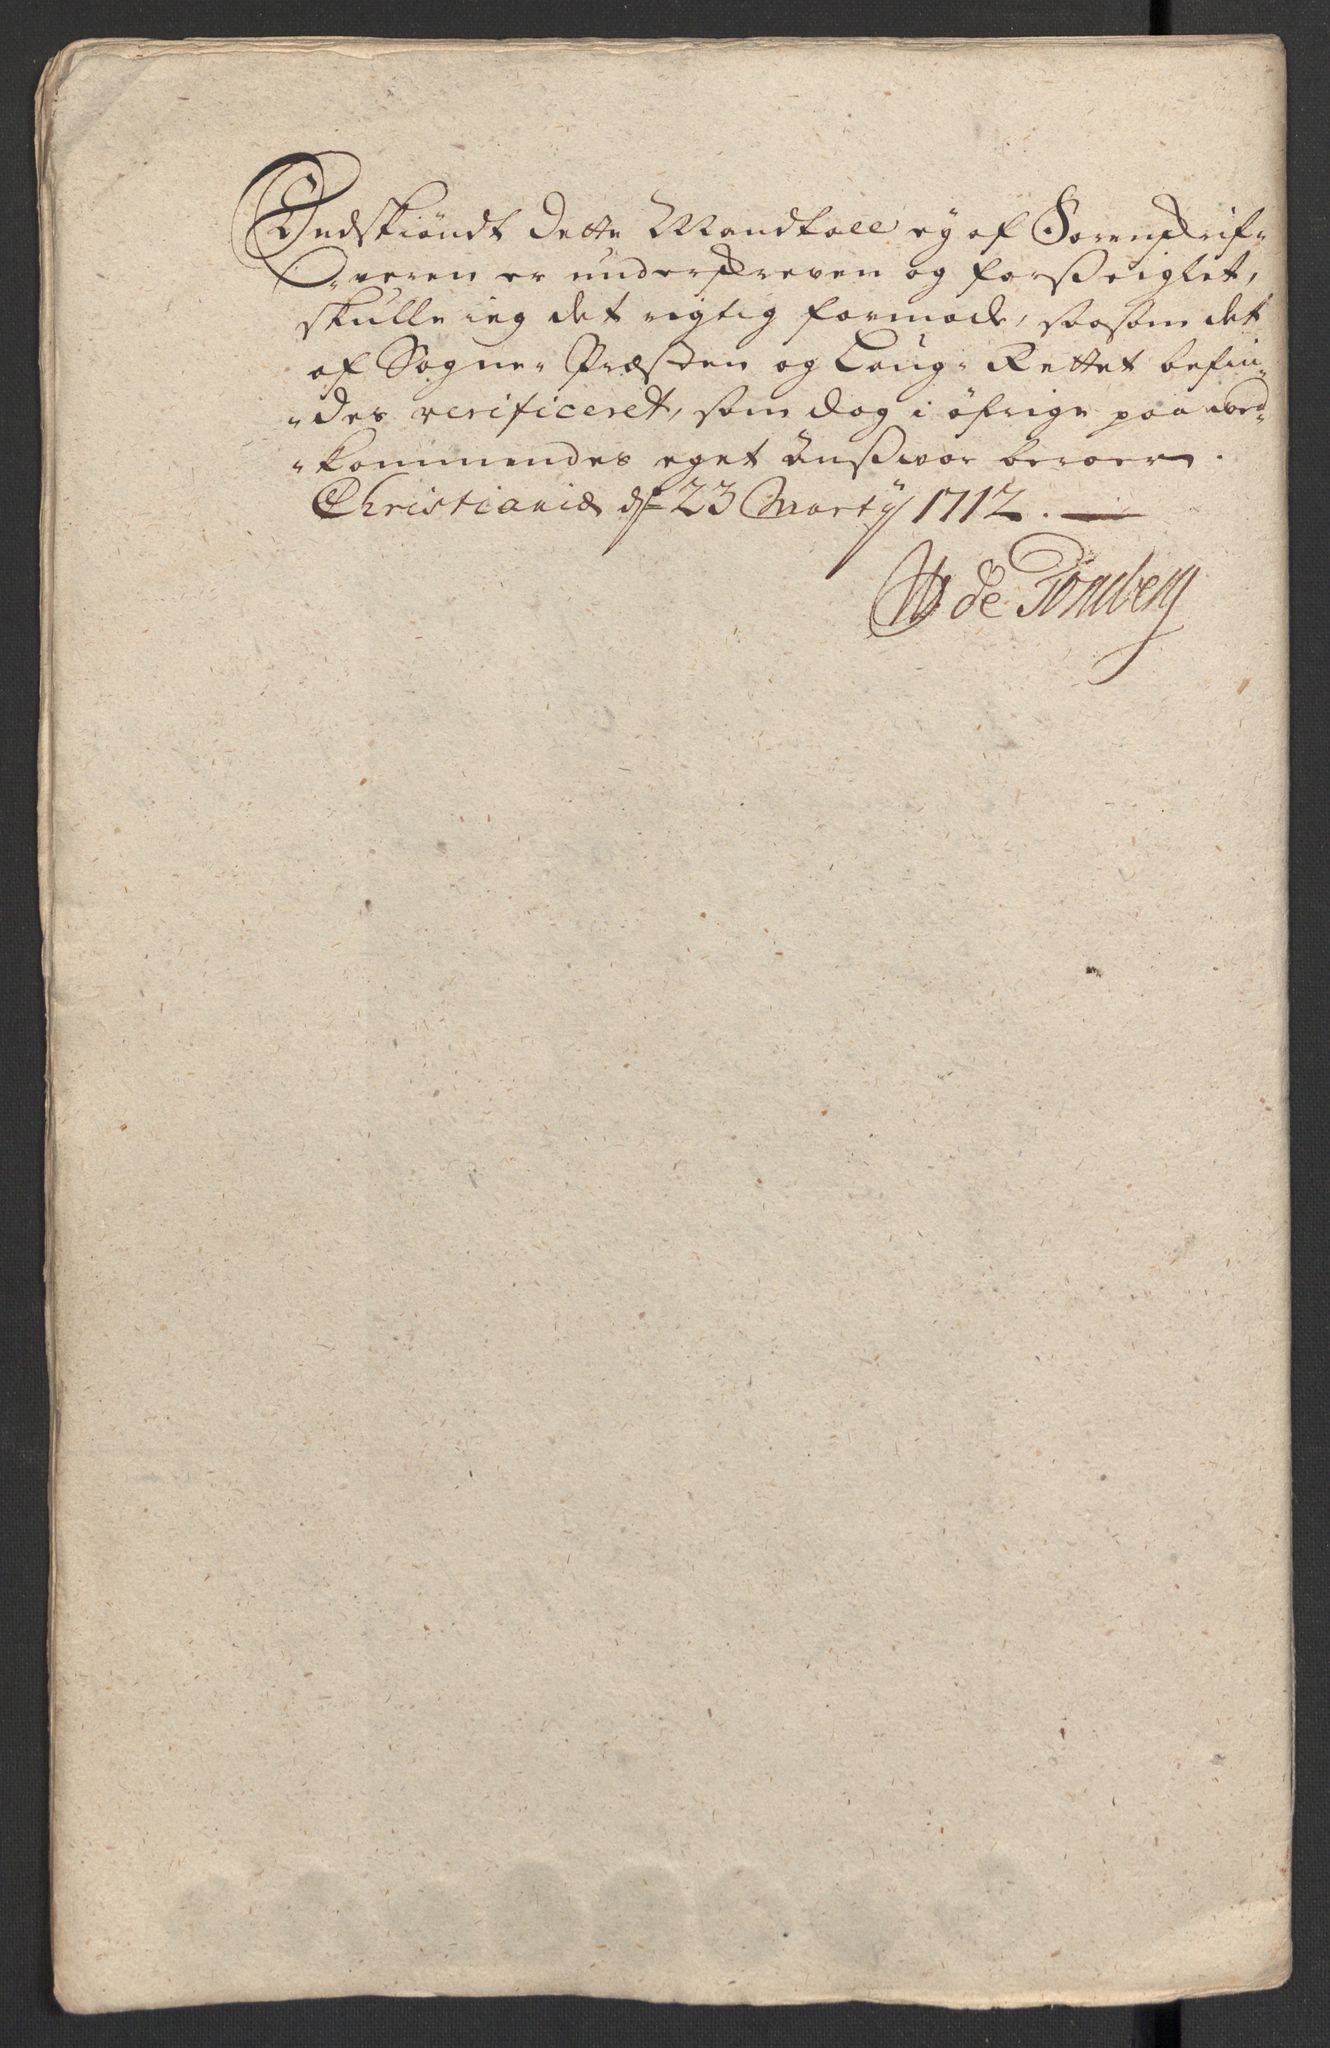 Endskiöndt dette Mandtall ey af Sorenskrif-
-veren er underskreven og forseiglet,
skulle ieg det rigtig formode, saasom det
af Sogne-Præsten og Laug-Rettet befin-
-des verificeret, som dog i öfrige paa ved-
-kommendes eget ansvar beroer.
Christiania d. 23 Martÿ 1712.
de Tonsberg